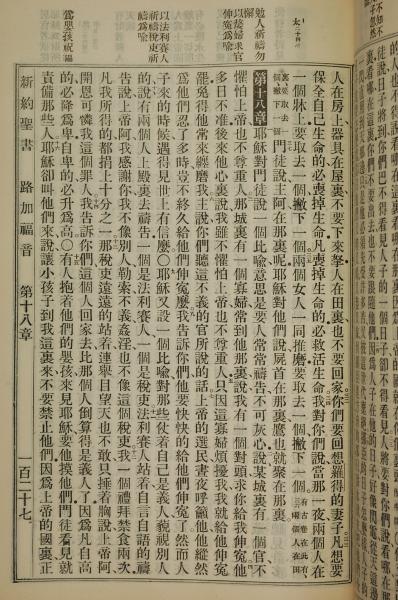 太二十四
人在房上器具在屋裏不要下來拏人在田裏也不要回家你們要回想羅得的妻子凡想要
保全自己生命的必喪掉生命凡喪掉生命的必救活生命我對你們說當那一夜兩個人在
一個牀上要取去一個撇下一個兩個女人一同推磨要取去一個撇下一個有古卷在此有兩個人在田
裏要取去一個撇下一個門徒說主阿在那裏呢耶穌對他們說屍首在那裏鷹也就聚在那裏
勉人祈禱勿懈
以嫠婦求官伸寃為喩
第十八章耶穌對門徒說一個比喻意思是要人常常禱告不可灰心說某城裏有一個官不
懼怕上帝也不尊重人那城裏有一個寡婦常到他那裏說我有一個對頭求你給我伸寃他
多日不准後來他心裏說我雖不懼怕上帝也不尊重人只因這寡婦煩擾我我就給他伸寃
罷免得他常來纏磨我主說你們聽這不義的官所說的話上帝的選民晝夜呼籲他他縱然
為他們忍了多時豈不終久給他們伸寃麼我告訴你們他要快快的給他們伸寃了然而人
以法利賽人祈禱稅吏祈禱為喩
子來的時候遇得見世上有信麼○耶穌又設一個比喻對那些仗着自己是義人藐視別人
的說有兩個人上殿裏去禱告一個是法利賽人一個是稅吏法利賽人站着自言自語的禱
告說上帝阿我感謝你我不像別人勒索不義姦淫也不像這個稅吏我一個禮拜禁食兩次
凡我所得的都捐上十分之一那稅吏遠遠的站着連舉目望天也不敢只捶着胸說上帝阿
開恩可憐我這個罪人我告訴你們這個人回家去比那個人倒算得是義人了因為凡自高
為嬰孩祝福
的必降為卑自卑的必升為高○有人抱着他們的嬰孩來見耶穌要他摸他們門徒看見就
責備那些人耶穌卻叫他們來說讓小孩子到我這裏來不要禁止他們因為上帝的國裏正
新約聖書 路加福音 第十八章 一百二十七